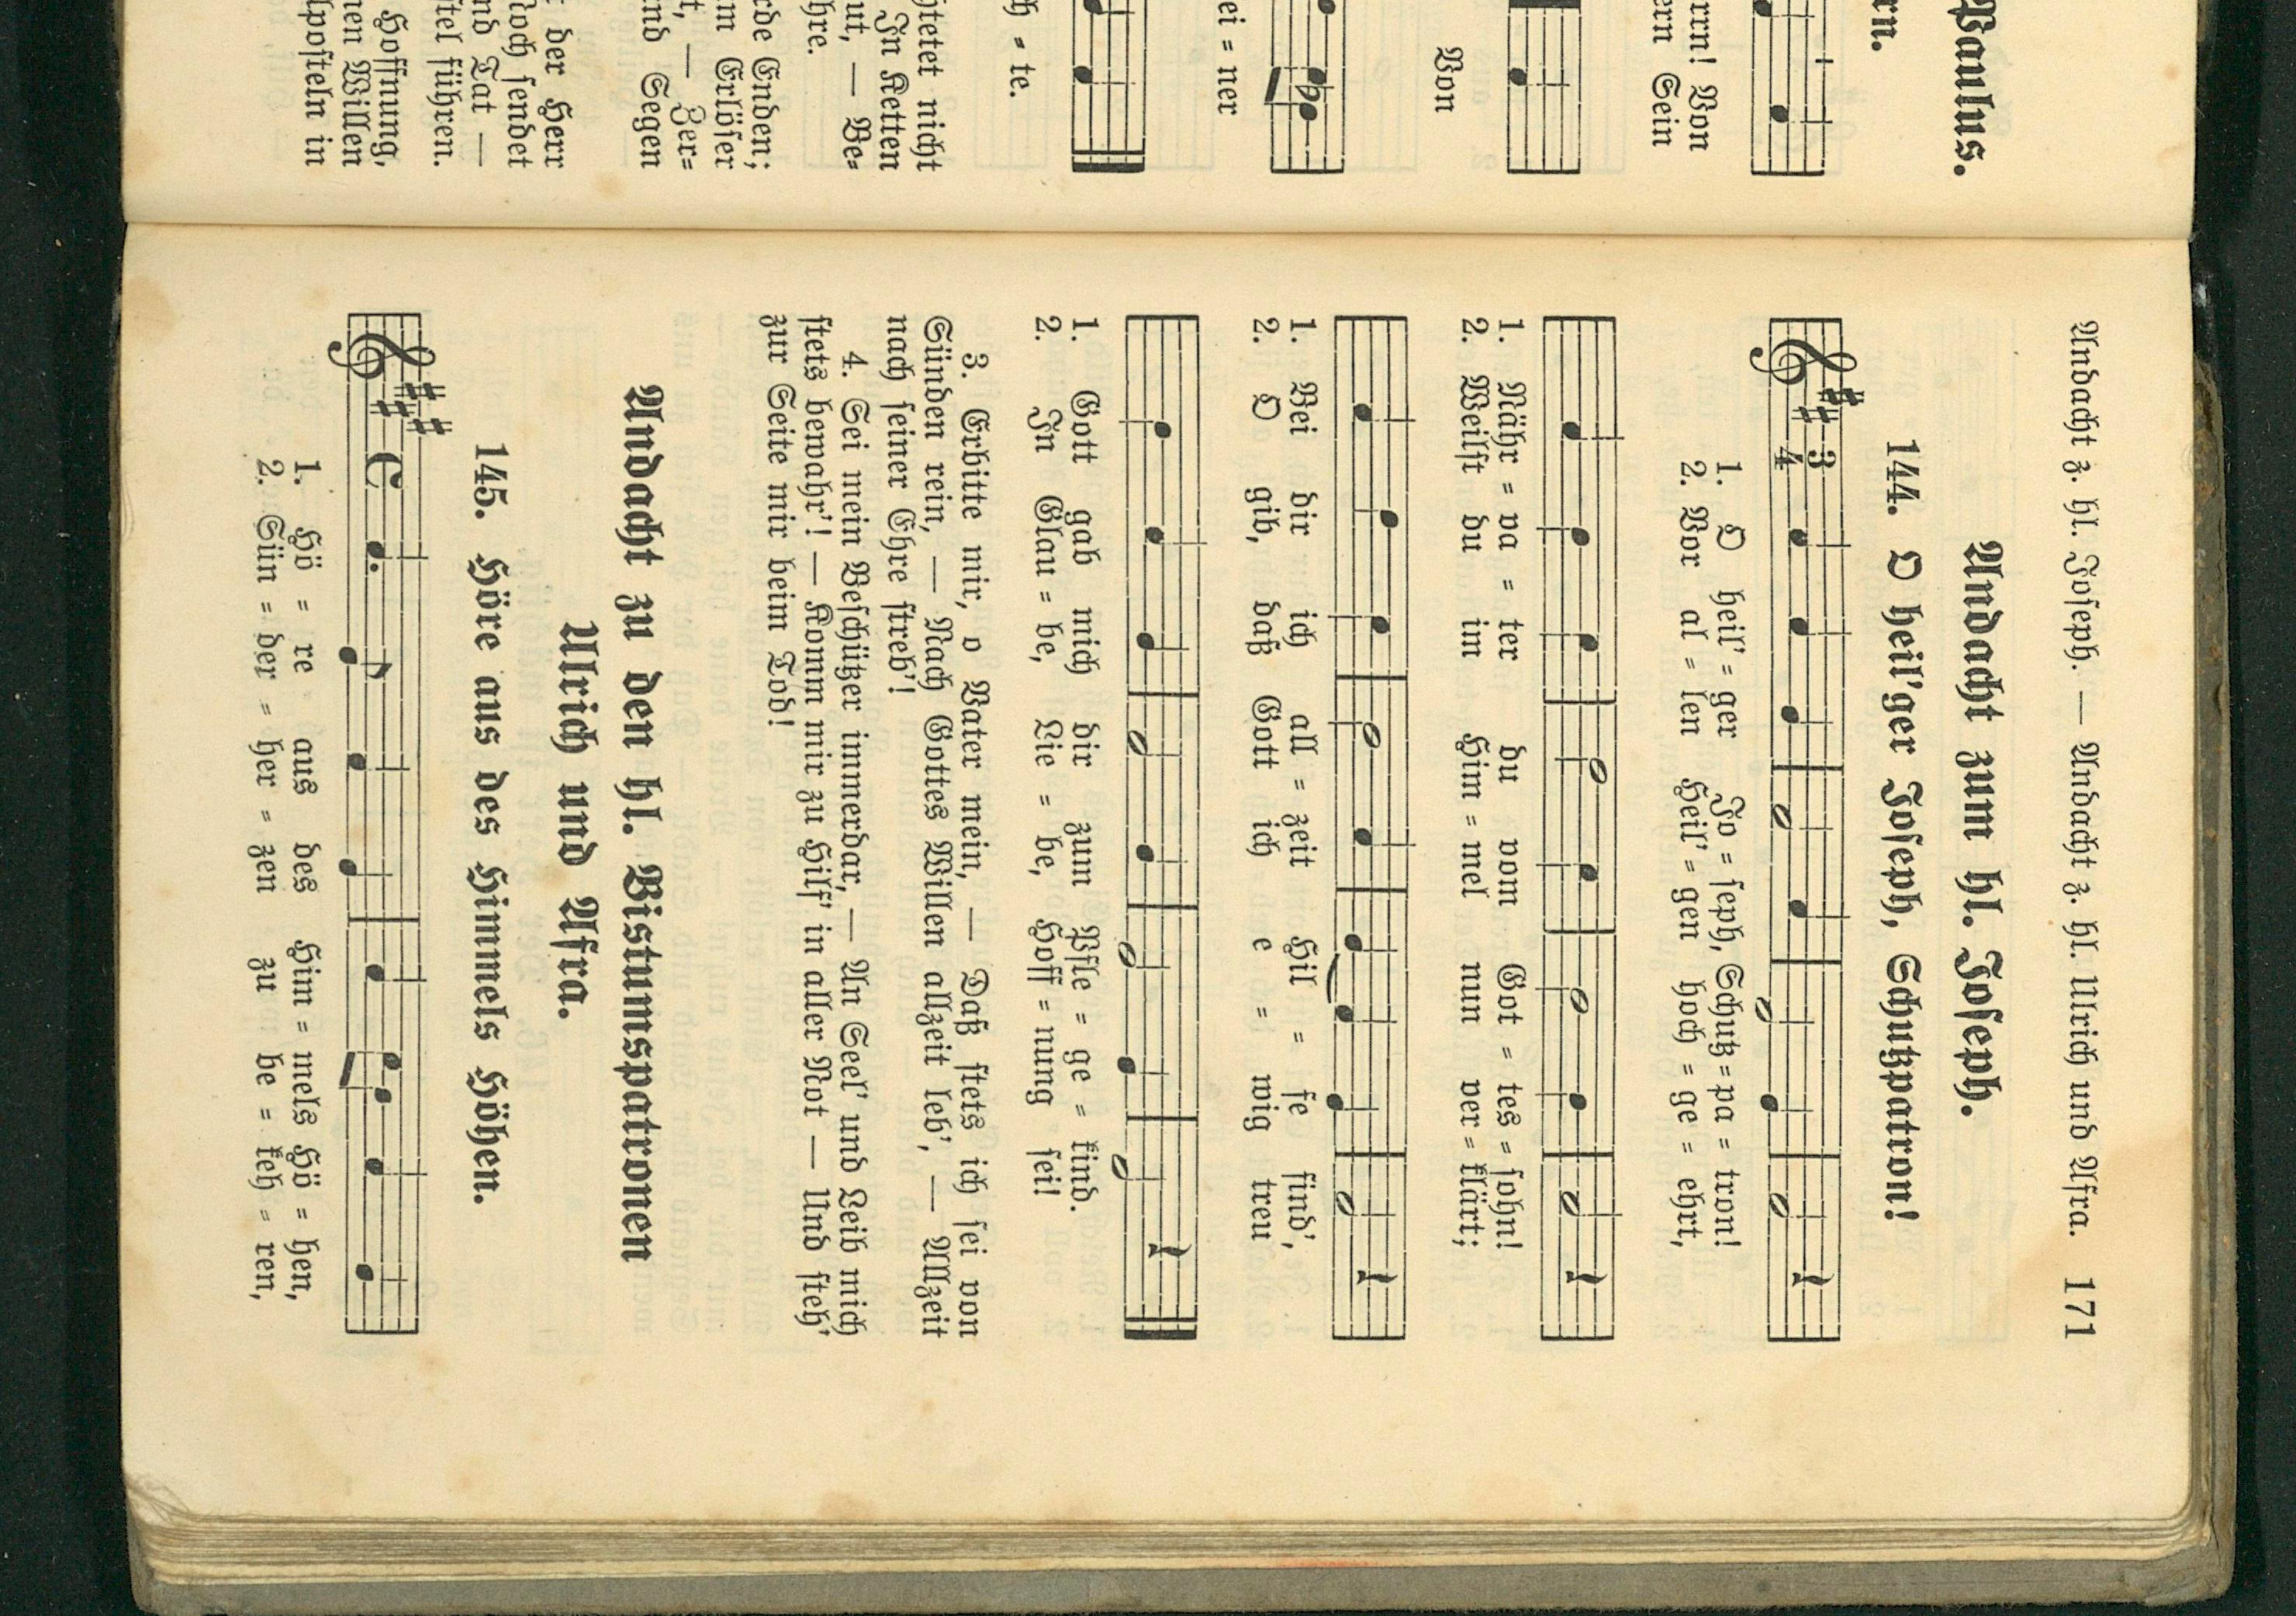 Paulus.
rn.
rrn! Von
ern Sein
Von
ei = ner
h = te.
htetet nicht
In Ketten
ut, — Be=
hre.
rde Enden;
m Erlöser
t, — Zer=
nd Segen
der Herr
och sendet
nd Tat —
tel führen.
Hoffnung,
nen Willen
lposteln in
Andacht z. hl. Joseph. — Andacht z. hl. Ulrich und Afra. 171
Andacht zum hl. Joseph.
144. O heil'ger Joseph, Schutzpatron!
1. O heil' = ger Jo = seph, Schutz = pa = tron!
2. Vor al = len Heil' = gen hoch = ge = ehrt,
1. Nähr = va = ter du vom Got = tes = sohn!
2. Weilst du im Him = mel nun ver = klärt;
1. Bei dir ich all = zeit Hil = fe find',
2. O gib, daß Gott ich e = wig treu
1. Gott gab mich dir zum Pfle = ge = kind.
2. In Glau = be, Lie = be, Hoff = nung sei!
3. Erbitte mir, o Vater mein, — Daß stets ich sei von
Sünden rein, — Nach Gottes Willen allzeit leb', — Allzeit
nach seiner Ehre streb'!
4. Sei mein Beschützer immerdar, — An Seel' und Leib mich
stets bewahr'! — Komm mir zu Hilf' in aller Not — Und steh'
zur Seite mir beim Tod!
Andacht zu den hl. Bistumspatronen
Ulrich und Afra.
145. Höre aus des Himmels Höhen.
1. Hö = re aus des Him = mels Hö = hen,
2. Sün = der = her = zen zu be = keh = ren,